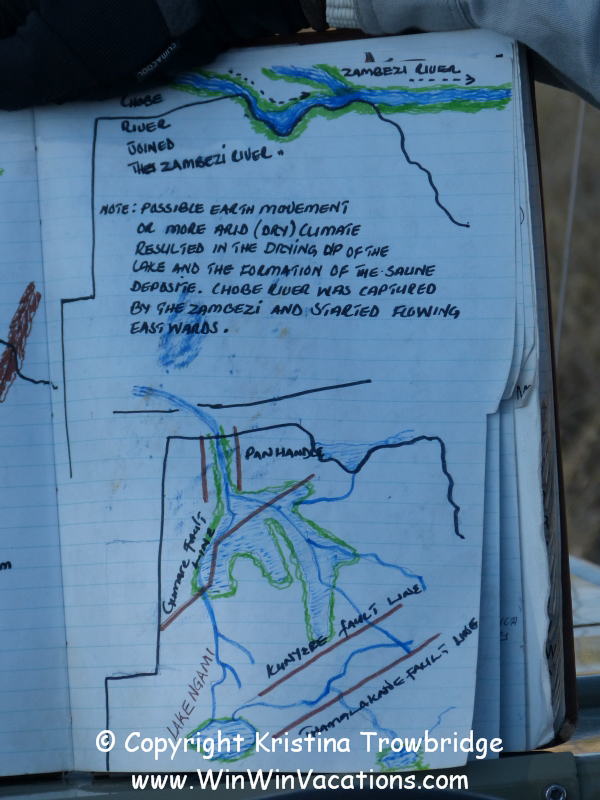 CLIMACOOL
ZAMBEZI RIVER
CHOBE
RIVER
JOINED
THE ZAMBEZI RIVER.
NOTE: POSSIBLE EARTH MOVEMENT
OR MORE ARID (DRY) CLIMATE
RESULTED IN THE DRYING UP OF THE
LAKE AND THE FORMATION OF THE SALINE
DEPOSITE. CHOBE RIVER WAS CAPTURED
BY THE ZAMBEZI AND STARTED FLOWING
EASTWARDS.
PANHANDLE
GUMARE FAULT
LINE
KUNYERE FAULT LINE
THAMALAKANE FAULT LINE
LAKE NGAMI
© Copyright Kristina Trowbridge
www.WinWinVacations.com